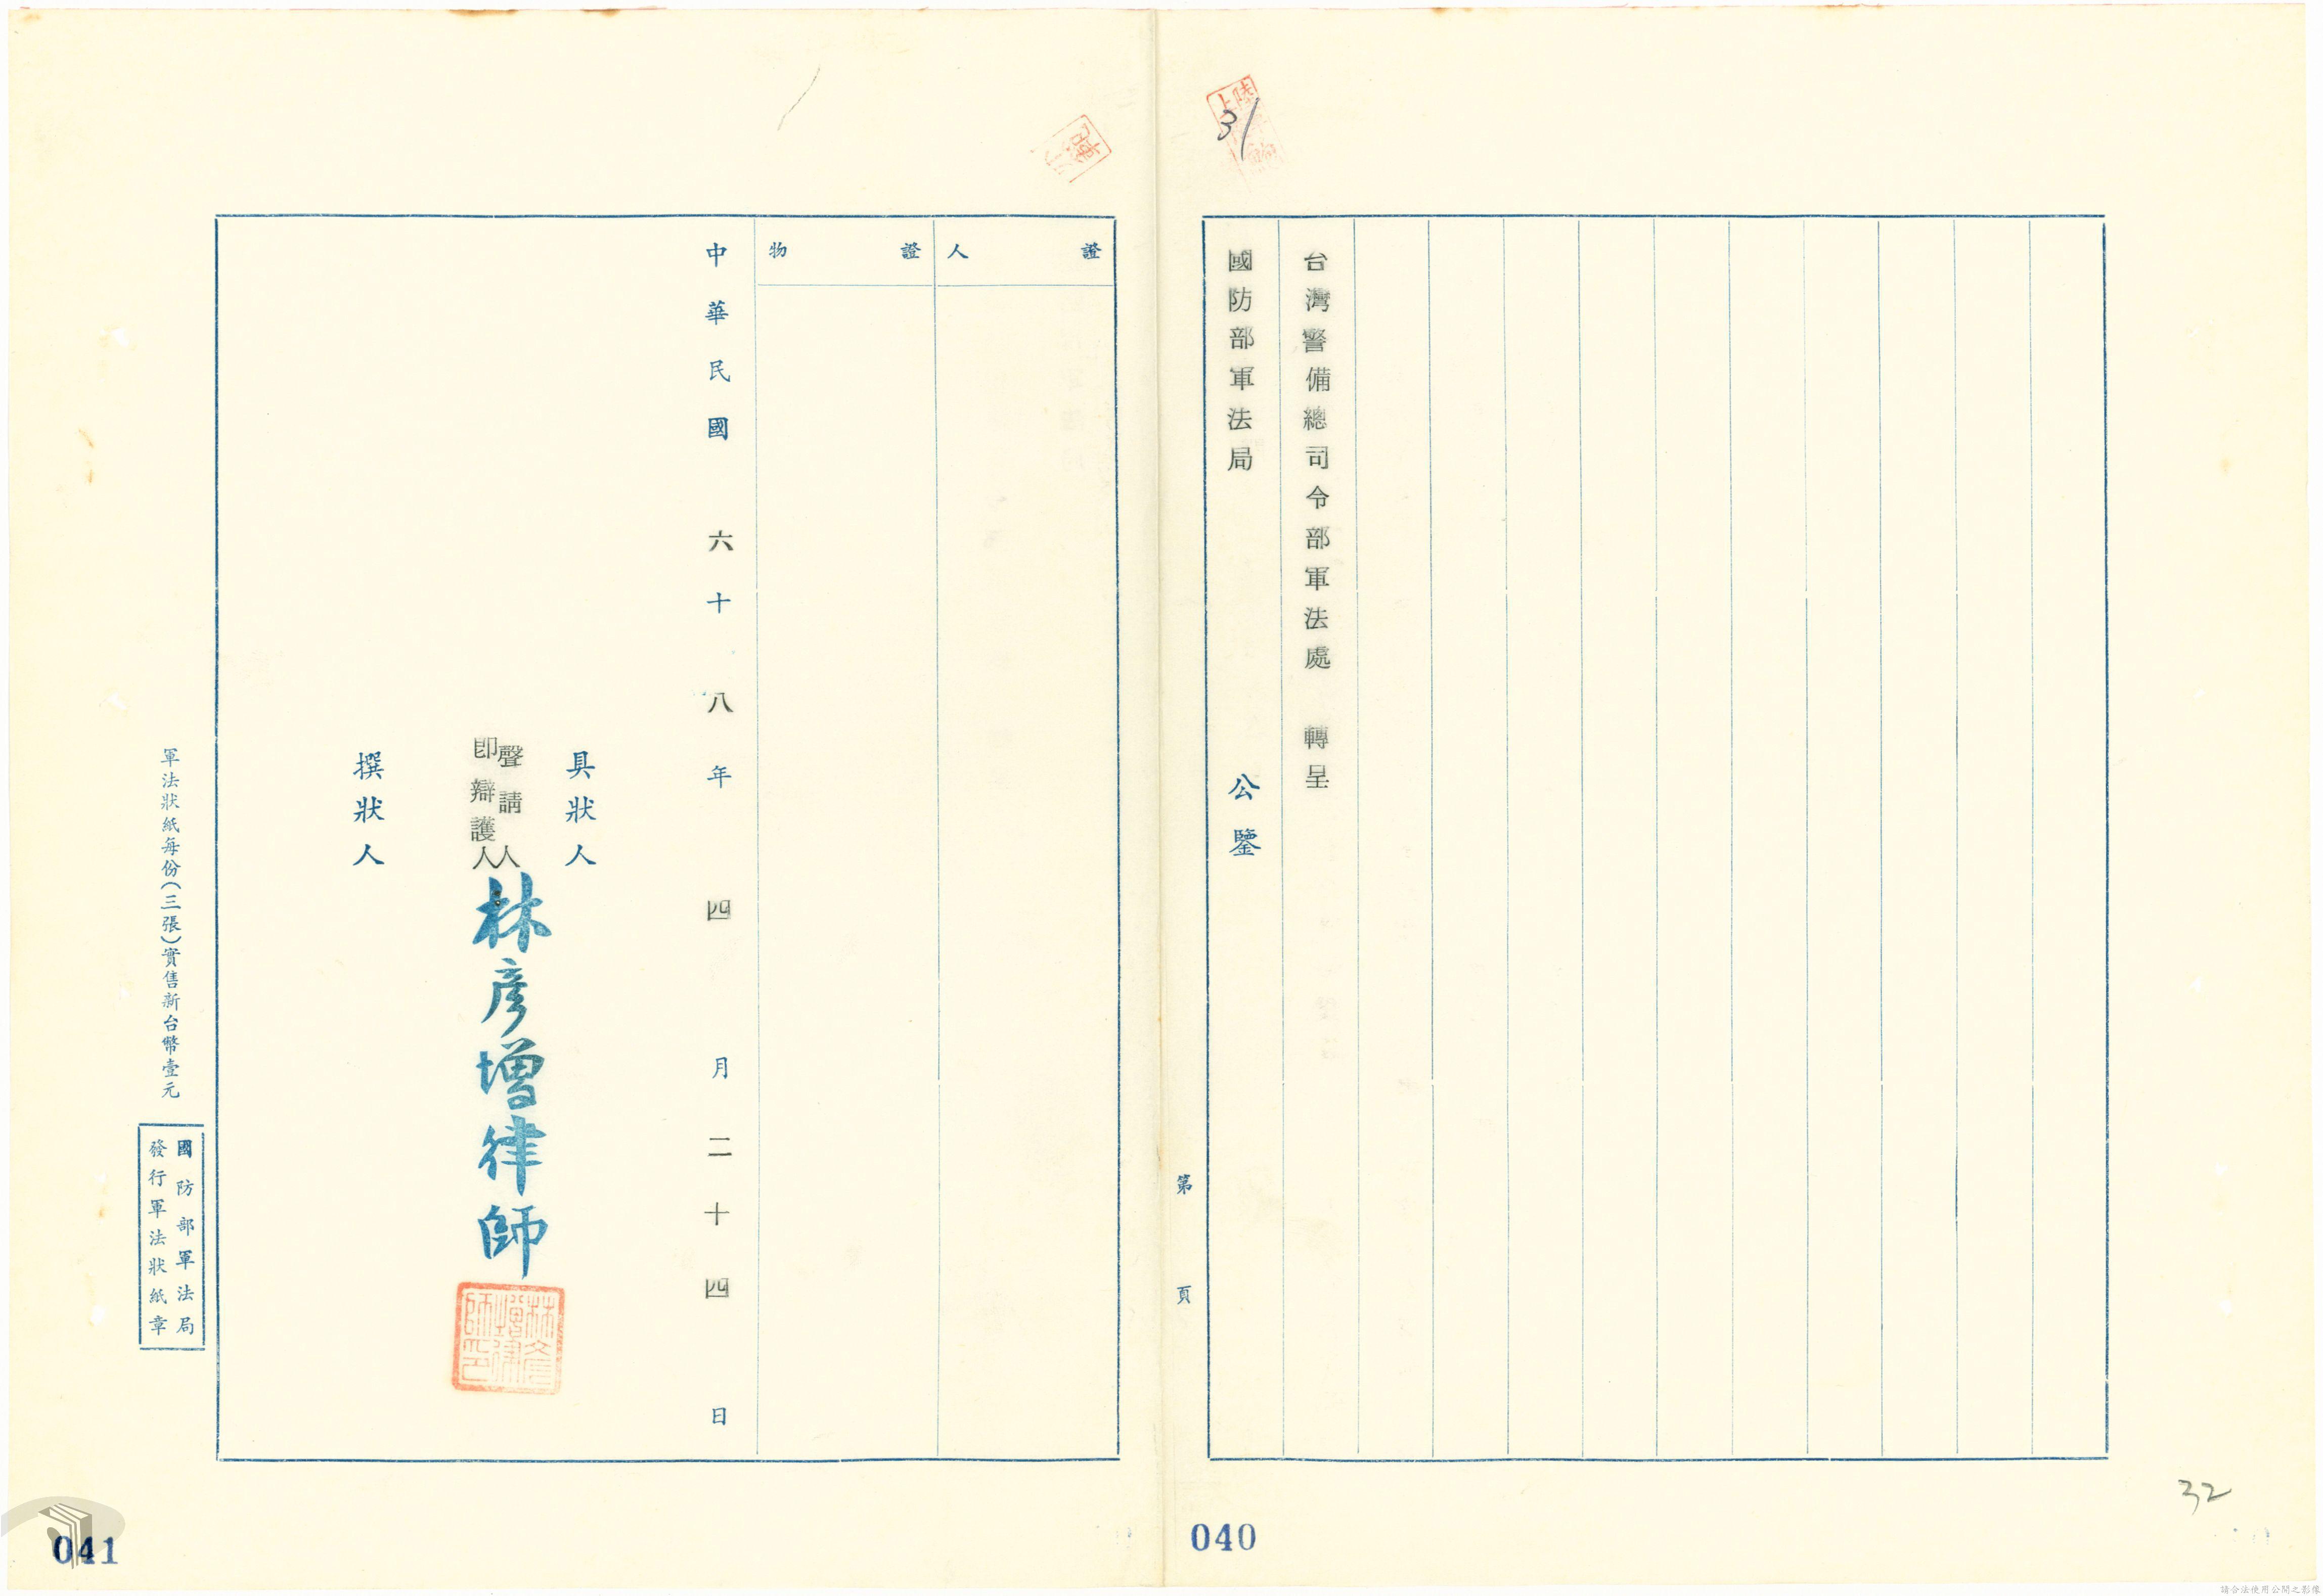 31
台灣警備總司令部軍法處 轉呈
國防部軍法局 公鑒
第 頁
040
32
證人
證物
中華民國 六十八年 四月二十四日
具狀人
聲請人
即辯護人
林彥增律師
林彥增律師印
撰狀人
軍法狀紙每份(三張)實售新台幣壹元
國防部軍法局
發行軍法狀紙章
041
請合法使用公開之影像